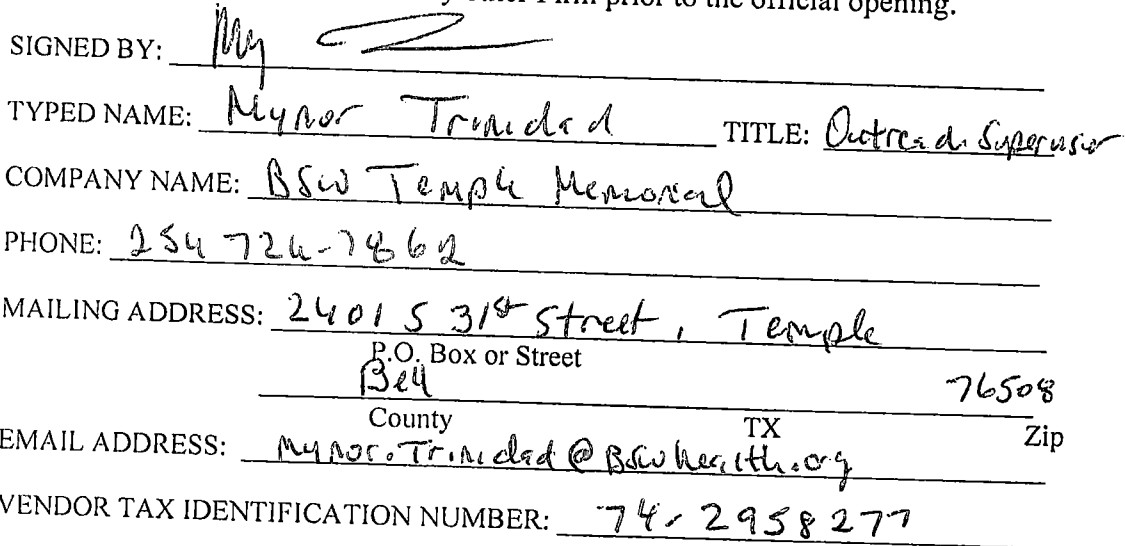 prior to the official opening.
SIGNED BY: My
TYPED NAME: Mynor Trinidad TITLE: Outreach Supervisor
COMPANY NAME: BSW Temple Memorial
PHONE: 254 724-7862
MAILING ADDRESS: 2401 S 31st Street, Temple
P.O. Box or Street
Bell 76508
County TX Zip
EMAIL ADDRESS: Mynor.Trinidad@BSWhealth.org
VENDOR TAX IDENTIFICATION NUMBER: 74-2958277